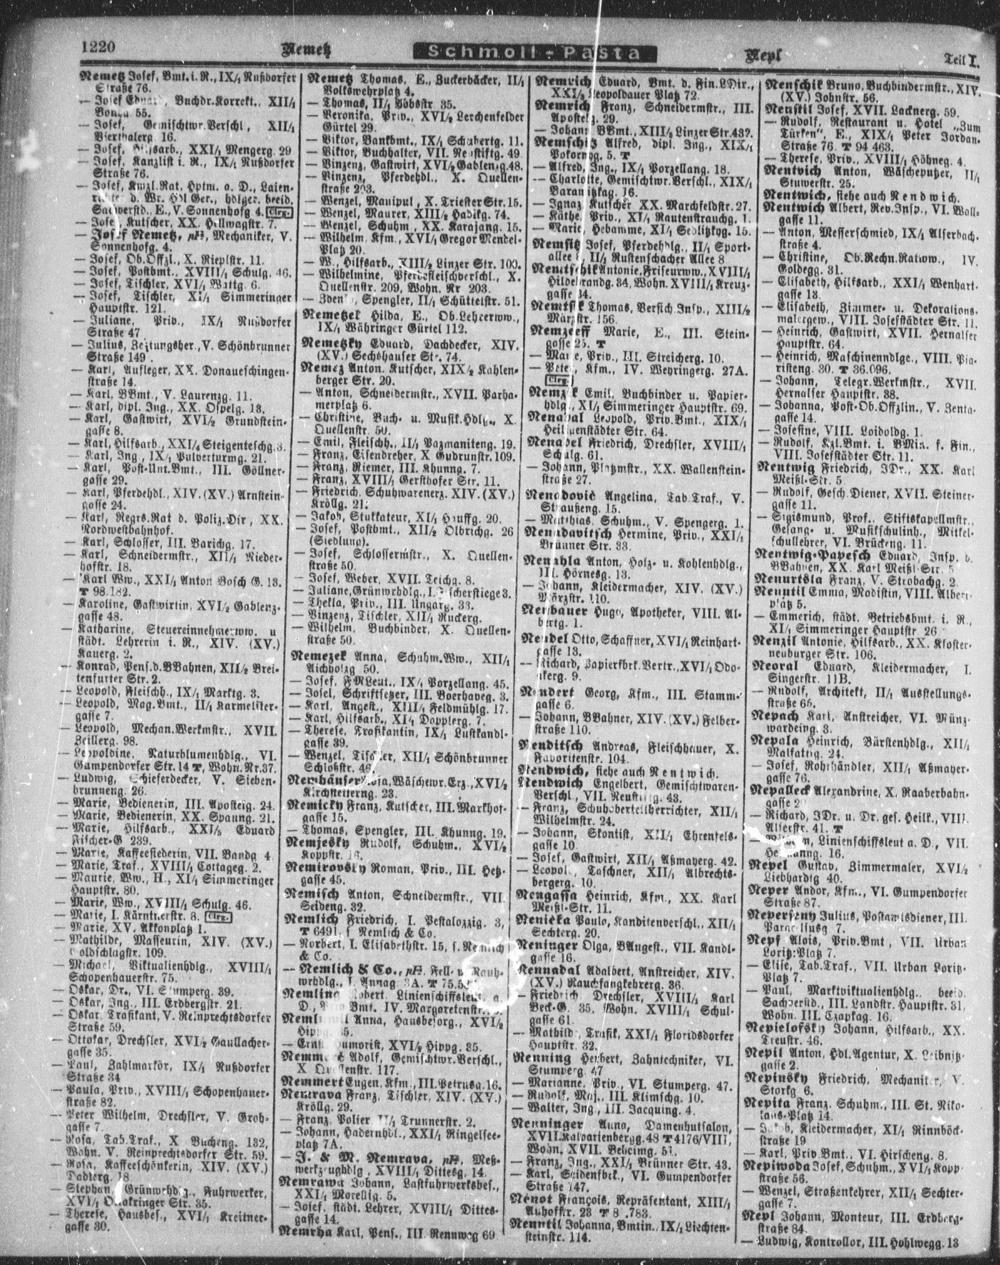 1220 Nemetz Schmoll-Pasta Nepl Teil I.
Nemetz Josef, Bmt. i. R., IX/1 Nußdorfer
Straße 76.
— Josef Eduard, Buchdr.Korrekt., XII/1
55.
— Josef, Gemischtwr.Verschl., XII/1
16.
— Josef, Hilfsarb., XXI/1 Mengerg. 29
— Josef, Kanzlist i. R., IX/1 Nußdorfer
Straße 76.
— Josef, Kanzl.Rat, Hptm. a. D., Laien-
richter d. Wr. Hdl Ger., hdlger. beeid.
Sachverstd., E., V. Sonnenhofg 4.
— Josef, Kutscher, XX. Hellwagstr. 7.
— Josef Nemetz, pH, Mechaniker, V.
Sonnenhofg. 4.
— Josef, Ob.Offzl., X. Rieplstr. 11.
— Josef, Postbmt., XVIII/1 Schulg. 46.
— Josef, Tischler, XVI/1 Wattg. 6.
— Josef, Tischler, XI/1 Simmeringer
Hauptstr. 121.
— Juliane, Priv., IX/1 Nußdorfer
Straße 47
— Julius, Zeitungsher., V. Schönbrunner
Straße 149.
— Karl, Aufleger, XX. Donaueschingen-
straße 14.
— Karl, BBmt., V. Laurenzg. 11.
— Karl, dipl. Ing., XX. Ospelg. 18.
— Karl, Gastwirt, XVI/2 Grundstein-
gasse 8.
— Karl, Hilfsarb., XXI/1 Steigenteschg. 3.
— Karl, Ing., IX/1 Pulverturmg. 21.
— Karl, Post-Unt.Bmt., III. Göllner-
gasse 29.
— Karl, Pferdehdl., XIV. (XV.) Arnstein-
gasse 24.
— Karl, Regrs.Rat d. Poliz.Dir., XX.
Nordwestbahnhof.
— Karl, Schlosser, III. Barichg. 17.
— Karl, Schneidermstr., XII/1 Nieder-
hofstr. 18.
— Karl Ww., XXI/1 Anton Bosch G. 13.
T 98.182.
— Karoline, Gastwirtin, XVI/2 Gablenz-
gasse 48.
— Katharine, Steuereinnehmersww. u
städt. Lehrerin i. R., XIV. (XV.)
Kauerg. 2.
— Konrad, Pens. d. BBahnen, XII/2 Brei-
tenfurter Str. 2.
— Leopold, Fleischh., IX/1 Marktg. 3.
— Leopold, Mag.Bmt., II/1 Karmeliter-
gasse 7.
— Leopold, Mechan.Werkmstr., XVII.
Zeillerg. 98.
— Leopoldine, Naturblumenhdlg., VI.
Gumpendorfer Str. 14 T, Wohn. Nr. 37.
— Ludwig, Schieferdecker, V. Sieben-
brunneng. 26.
— Marie, Bedienerin, III. Apostelg. 24.
— Marie, Bedienerin, XX. Spaung. 21.
— Marie, Hilfsarb., XXI/5 Eduard
Fischer-G 239.
— Marie, Kaffeesiederin, VII. Bandg 4.
— Marie, Traf., XVIII/1 Cottageg. 2.
— Maurie, Ww., H., XI/1 Simmeringer
Hauptstr. 80.
— Marie, Ww., XVIII/1 Schulg. 46.
— Marie, I. Kärntnerstr. 8.
— Marie, XV. Akkonplatz 1.
— Mathilde, Masseurin, XIV. (XV.)
Goldschlagstr. 109.
— Michael, Viktualienhdlg., XVIII/1
Schopenhauerstr. 75.
— Oskar, Dr., VI. Stumperg. 39.
— Oskar, Ing., III. Erdbergstr. 21.
— Oskar, Trafikant, V. Reinprechtsdorfer
Straße 59.
— Ottokar, Drechsler, XVI/2 Gaullacher-
gasse 35.
— Paul, Zahlmarkör, IX/4 Nußdorfer
Straße 34
— Paula, Priv., XVIII/1 Schopenhauer-
straße 82.
— Peter Wilhelm, Drechsler, V. Groh-
gasse 7.
— Rosa, Tab.Traf., X Bucheng. 132,
Wohn. V. Reinprechtsdorfer Str. 59.
— Rosa, Kaffeeschönkerin, XIV. (XV.)
Dadlerg. 18
— Stephan, Grünwhdlg., Fuhrwerker,
XVI/1 Ottakringer Str. 35.
— Therese, Hausbes., XVI/1 Kreitner-
gasse 30.
Nemetz Thomas, E., Zuckerbäcker, II/1
Volkswehrplatz 4.
— Thomas, II/1 35.
— Veronika, Priv., XVI/2 Lerchenfelder
Gürtel 29.
— Viktor, Bankbmt., IX/1 Schubertg. 11.
— Viktor, Buchhalter, VII. Neustiftg. 49.
— Vinzenz, Gastwirt, XVI/2 Gablenzg. 48.
— Vinzenz, Pferdehdl., X. Quellen-
straße 203.
— Wenzel, Manipul., X. Triester Str. 15.
— Wenzel, Maurer, XIII/2 Hadikg. 74.
— Wenzel, Schuhm., XX. Karajang. 15.
— Wilhelm, Kfm., XVI/1 Gregor Mendel-
Platz 20.
— W., Hilfsarb., XIII/2 Linzer Str. 100.
— Wilhelmine, Pferdefleischverschl., X.
Quellenstr. 209, Wohn. Nr 203.
— Zdenko, Spengler, II/1 Schüttelstr. 51.
Nemetzek Hilda, E., Ob.Lehrerww.,
IX/1 Währinger Gürtel 112.
Nemetzky Eduard, Dachdecker, XIV.
(XV.) Sechshauser Str. 74.
Nemez Anton, Kutscher, XIX/2 Kahlen-
berger Str. 20.
— Anton, Schneidermstr., XVII. Parha-
merplatz 6.
— Christine, Buch- u. Musik.Hdlg., X.
Quellenstr. 50.
— Emil, Fleischh., II/1 Pazmaniteng. 19.
— Franz, Eisendreher, X Gudrunstr. 109.
— Franz, Riemer, III. Khunng. 7.
— Franz, XVIII/1 Gersthofer Str. 11.
— Friedrich, Schuhwarenerz. XIV. (XV.)
Kröllg. 21.
— Jakob, Stukkateur, XI/1 Hauffg. 20.
— Josef, Postbmt., XII/2 Olbrichg. 26
(Siedlung).
— Josef, Schlossermstr., X. Quellen-
straße 50.
— Josef, Weber, XVII. Teichg. 8.
— Juliane, Grünwrhdlg., I. Fischerstiege 3.
— Thekla, Priv., III. Ungarg. 33.
— Vinzenz, Tischler, XII/1 Ruckerg.
— Wilhelm, Buchbinder, X. Quellen-
straße 50.
Nemezek Anna, Schuhm.Ww., XII/1
Aichholzg 50.
— Josef, FMLeut., IX/1 Porzellang. 45.
— Josef, Schriftsetzer, III. Boerhaveg. 3.
— Karl, Angest., XIII/1 Feldmühlg. 17.
— Karl, Hilfsarb., XI/1 Dopplerg. 7.
— Therese, Trafikantin, IX/1 Lustkandl-
gasse 39.
— Wenzel, Tischler, XII/1 Schönbrunner
Schloßstr. 46
Nemhäuser Kaja, Wäschewr.Erz., XVI/2
Kirchstetterng. 23.
Nemicky Franz, Kutscher, III. Markhof-
gasse 15.
— Thomas, Spengler, III. Khunng. 19.
Nemjesky Rudolf, Schuhm., XVI/2
Koppstr.
Nemirovsky Roman, Priv., III. Hetz-
gasse 45.
Nemisch Anton, Schneidermstr., VII
Seideng. 32.
Nemlich Friedrich, I. Pestalozzig. 3,
T 6491. s Nemlich & Co.
— Norbert, I. Elisabethstr. 15, s. Nemlich
& Co.
— Nemlich & Co., pH. Fell- u. Rauh-
wrhdlg., I. Annag 3A. T
Nemling Robert, Linienschiffsleut. a.
D., Priv Bmt. IV. Margaretenstr.
Anna, Hausbesorg., XVI/2
Hippg. 35.
— Ernst, Humorist, XVI/2 Hippg. 35.
Nemmert Adolf, Gemischtwr.Verschl.,
X. Quellenstr. 117.
Nemmert Eugen, Kfm., III. Petrusg. 16.
Nemrava Franz, Tischler, XIV. (XV.)
Kröllg. 29.
— Franz Polier II/1 Trunnerstr. 2.
— Johann, Hadernhdl., XXI/1 Ringelsee-
platz 7A.
— J. & M. Nemrava, pH, Meß-
werkzeughdlg., XVIII/1 Dittesg. 14.
Nemrawa Johann, Lastfuhrwerksbes.,
XXI/1 Morellig. 5.
— Josef, städt. Lehrer, XVIII/1 Dittes-
gasse 14.
Nemrha Karl, Pens., III. Rennweg 69
Nemrich Eduard, Bmt. d. Fin.L.Dir.,
XXI/4 Leopoldauer Platz 72.
Nemrich Franz, Schneidermstr., III.
Apostelg. 29.
— Johann, BBmt., XIII/3 Linzer Str. 437.
Nemschitz Alfred, dipl. Ing., XIX/1
Pokornyg. 5. T
— Alfred, Ing., IX/1 Porzellang. 18.
— Charlotte, Gemischtwr.Verschl., XIX/1
Barawitzkag. 16.
— Ignaz, Kutscher, XX. Marchfeldstr. 27.
— Käthe, Priv., XI/1 Rautenstrauchg. 1.
— Marie, Hebamme, XI/1 Sedlitzkyg. 15.
Nemsitz Josef, Pferdehdlg., II/1 Sport-
allee II/1 Rustenschacher Allee 8
Nemtschik Antonie, Friseurww., XVIII/1
Hildebrandg. 34, Wohn. XVIII/1 Kreuz-
gasse 34.
Nemtsik Thomas, Versich.Insp., XIII/2
Märzstr. 156.
Nemzeeff Marie, E., III. Stein-
gasse 25. T
— Marie, Priv., III. Streicherg. 10.
— Peter, Kfm., IV. Weyringerg. 27A.
Emil, Buchbinder u. Papier-
hdlg., XI/1 Simmeringer Hauptstr. 69.
Nenadal Leopold, Priv.Bmt., XIX/1
Heiligenstädter Str. 64.
Nenadel Friedrich, Drechsler, XVIII/1
Schulg. 61.
— Johann, Platzmstr., XX. Wallenstein-
straße 27.
Nenadović Angelina, Tab.Traf., V.
Straußeng. 15.
— Matthias, Schuhm., V. Spengerg. 1.
Nendavitsch Hermine, Priv., XXI/1
Brünner Str. 33.
Nenahla Anton, Holz- u. Kohlenhdlg.,
III. Hörnesg. 13.
— Johann, Kleidermacher, XIV. (XV.)
Märzstr. 110.
Neubauer Hugo, Apotheker, VIII. Al-
bertg. 1.
Nendel Otto, Schaffner, XVI/1 Reinhart-
gasse 13.
— Richard, Papierfbrk.Vertr., XVI/1 Odo-
akerg. 9.
Nendert Georg, Kfm., III. Stamm-
gasse 6.
— Johann, BBahner, XIV. (XV.) Felber-
straße 110.
Nenditsch Andreas, Fleischhauer, X.
Favoritenstr. 104.
Nendwich, siehe auch Nentwich.
Nendwich Engelbert, Gemischtwaren-
Verschl., VII. Neustiftg. 43.
— Franz, Schuhobertellherrichter, XII/1
Wilhelmstr. 24.
— Johann, Skontist, XII/1 Ehrenfels-
gasse 10.
— Josef, Gastwirt, XII/1 Aßmayerg. 42.
— Leopold, Taschner, XII/1 Albrechts-
bergerg. 10.
Nengassa Heinrich, Kfm., XX. Karl
Meißl-Str. 11.
Nenicka Paulo, Kanditenverschl., XII/1
Sechterg. 20.
Neninger Olga, BAngest., VII. Kandl-
gasse 16.
Nennadal Adalbert, Anstreicher, XIV.
(XV.) Rauchfangkehrerg. 36.
— Friedrich, Drechsler, XVIII/1 Karl
Beck-G. 35. Wohn. XVIII/1 Schul-
gasse 61.
— Mathilde, Trafik, XXI/1 Floridsdorfer
Hauptstr. 32.
Nenning Herbert, Zahntechniker, VI.
Stumperg. 47
— Marianne, Priv., VI. Stumperg. 47.
— Rudolf, Maj., III. Klimschg. 10.
— Walter, Ing., III. Jacquing. 4.
Nenninger Anno, Damenhutsalon,
XVII. Kalvarienbergg. 48 T 4176/VIII,
Wohn. XVII. Beheimg. 51.
— Franz, Ing., XXI/1 Brünner Str. 43.
— Karl, Seidenfbrk., VI. Gumpendorfer
Straße 147.
Nénot François, Repräsentant, XIII/1
Auhofstr. 23 T 8 .783.
Nenntil Johanna, Bmtin., IX/1 Liechten-
steinstr. 114.
Nenschik Bruno, Buchbindermstr., XIV.
(XV.) Johnstr. 56.
Josef, XVII. Lacknerg. 59.
— Rudolf, Restaurant u. Hotel „Zum
Türken“, E., XIX/1 Peter Jordan-
Straße 76. T 94 463.
— Therese, Priv., XVIII/1 Höhneg. 4.
Nentvich Anton, Wäscheputzer, II/1
Stuwerstr. 25.
Nentwich, siehe auch Nendwich.
Nentwich Albert, Rev.Insp., VI. Woll-
gasse 11.
— Anton, Messerschmied, IX/1 Alserbach-
straße 4.
— Christine, Ob.Rechn.Ratww., IV.
Goldegg. 31.
— Elisabeth, Hilfsarb., XXI/1 Wenhart-
gasse 13.
— Elisabeth, Zimmer- u. Dekorations-
malergew., VIII. Josefstädter Str. 11.
— Heinrich, Gastwirt, XVII. Hernalser
Hauptstr. 64.
— Heinrich, Maschinenndlge., VIII. Pia-
risteng. 30. T 36.096.
— Johann, Telegr.Werkmstr., XVII.
Hernalser Hauptstr. 38.
— Johanna, Post-Ob.Offzlin., V. Zenta-
gasse 14.
— Josefine, VIII. Loidoldg. 1.
— Rudolf, Kzl.Bmt. i. BMin. f. Fin.,
VIII. Josefstädter Str. 11.
Nentwig Friedrich, JDr., XX. Karl
Meißl-Str. 5
— Rudolf, Gesch.Diener, XVII. Steiner-
gasse 11.
— Sigismund, Prof., Stiftskapellmstr.,
Gesang- u. Musikschulinh., Mittel-
schullehrer, VI. Brückeng. 11.
Nentwig-Payesch Eduard, Insp. d.
BBahnen, XX. Karl Meißl-Str. 5
Nenurtsla Franz, V. Strobachg. 2.
Nenutil Emma, Modistin, VIII. Albert-
platz 5.
— Emmerich, städt. Betriebsbmt. i. R.,
XI/1 Simmeringer Hauptstr 26
Nenzil Antonie, Hilfsarb., XX. Kloster-
neuburger Str. 106.
Neoral Eduard, Kleidermacher, I.
Singerstr. 11B.
— Rudolf, Architekt, II/1 Ausstellungs-
straße 65.
Nepach Karl, Anstreicher, VI. Münz-
wardeing. 3.
Nepala Heinrich, Bürstenhdlg., XII/1
Malfattig. 24.
— Josef, Rohrhändler, XII/1 Aßmayer-
gasse 76.
Nepalleck Alexandrine, X. Raaberbahn-
gasse 2
— Richard, JDr. u. Dr. ges. Heilk., VIII.
Alserstr. 41. T
Linienschiffsleut a. D., VII.
Hermanng. 16.
Nepel Gustav, Zimmermaler, XVI/2
Liebhardtg 40.
Neper Andor, Kfm., VI. Gumpendorfer
Straße 87.
Neperseny Julius, Postamtsdiener, III.
Paracelsusg 7.
Nepf Alois, Priv.Bmt, VII. Urban
Loritz-Platz 7.
— Elise, Tab.Traf., VII. Urban Loritz-
Platz 7.
— Paul, Marktviktualienhdlg., beeid.
Sachverstd., III. Landstr. Hauptstr. 31,
Wohn. III. Czapkag. 16.
Nepielofsky Johann, Hilfsarb., XX.
Treustr. 46.
Nepil Anton, Hdl.Agentur, X. Leibnitz-
gasse 2.
Nepinsky Friedrich, Mechaniker, V.
Storkg 6.
Nepita Franz, Schuhm., III. St. Niko-
laus-Platz 14.
— Jakob, Kleidermacher, XI/1 Rinnböck-
straße 19
— Karl, Priv.Bmt. VI. Hirscheng. 8.
Nepiwoda Josef, Schuhm., XVI/1 Kopp-
straße 56.
— Wenzel, Straßenkehrer, XII/1 Sechter-
gasse 7.
Nepl Johann, Monteur, III. Erdberg-
straße 84.
— Ludwig, Kontrollor, III. Hohlwegg. 13